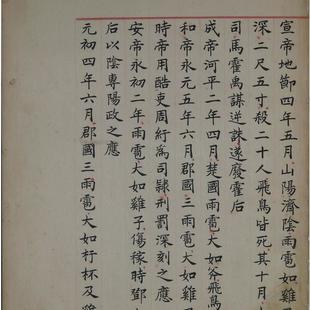 宣帝地節四年五月山陽濟陰雨雹如雞子
深二尺五寸殺二十人飛鳥皆死其十月大
司馬霍禹謀逆誅遂廢霍后
成帝河平二年四月楚國雨雹大如斧飛鳥
和帝永元五年六月郡國三雨雹大如雞子
時帝用酷吏周紆為司隸刑罰深刻之應
安帝永初二年雨雹大如雞子傷稼時鄧太
后以陰專陽政之應
元初四年六月郡國三雨雹大如杅杯及雞